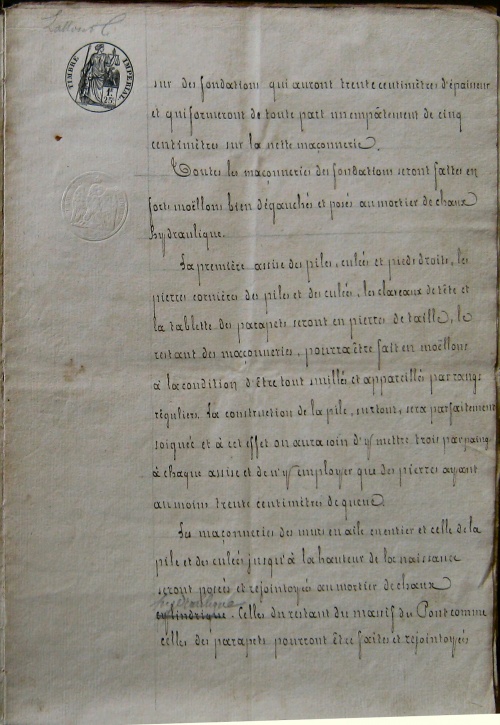 TIMBRE IMPERIAL
sur des fondations qui auront trente centimètres d'épaisseur
et qui formeront de toute part un empâtement de cinq
centimètres sur la nette maçonnerie.
Toutes les maçonneries des fondations seront faites en
forts moëllons bien dégauchés et posés au mortier de chaux
hydraulique.
La première assise des piles, culées et pieds droits, les
pierres cornières des piles et des culées, les claveaux de tête et
la tablette des parapets seront en pierres de taille, le
restant des maçonneries, pourra être fait en moëllons
à la condition d'être tout smillés et appareillés par rangs
réguliers. La construction de la pile, surtout, sera parfaitement
soignée et à cet effet on aura soin d'y mettre trois parpaings
à chaque assise et de n'y employer que des pierres ayant
au moins trente centimètres de queue.
Les maçonneries des murs en aile en entier et celle de la
pile et des culées jusqu'à la hauteur de la naissance
seront posées et rejointoyés au mortier de chaux
hydraulique
cylindrique. Celles du restant du massif du Pont comme
celles des parapets pourront être faites et rejointoyés